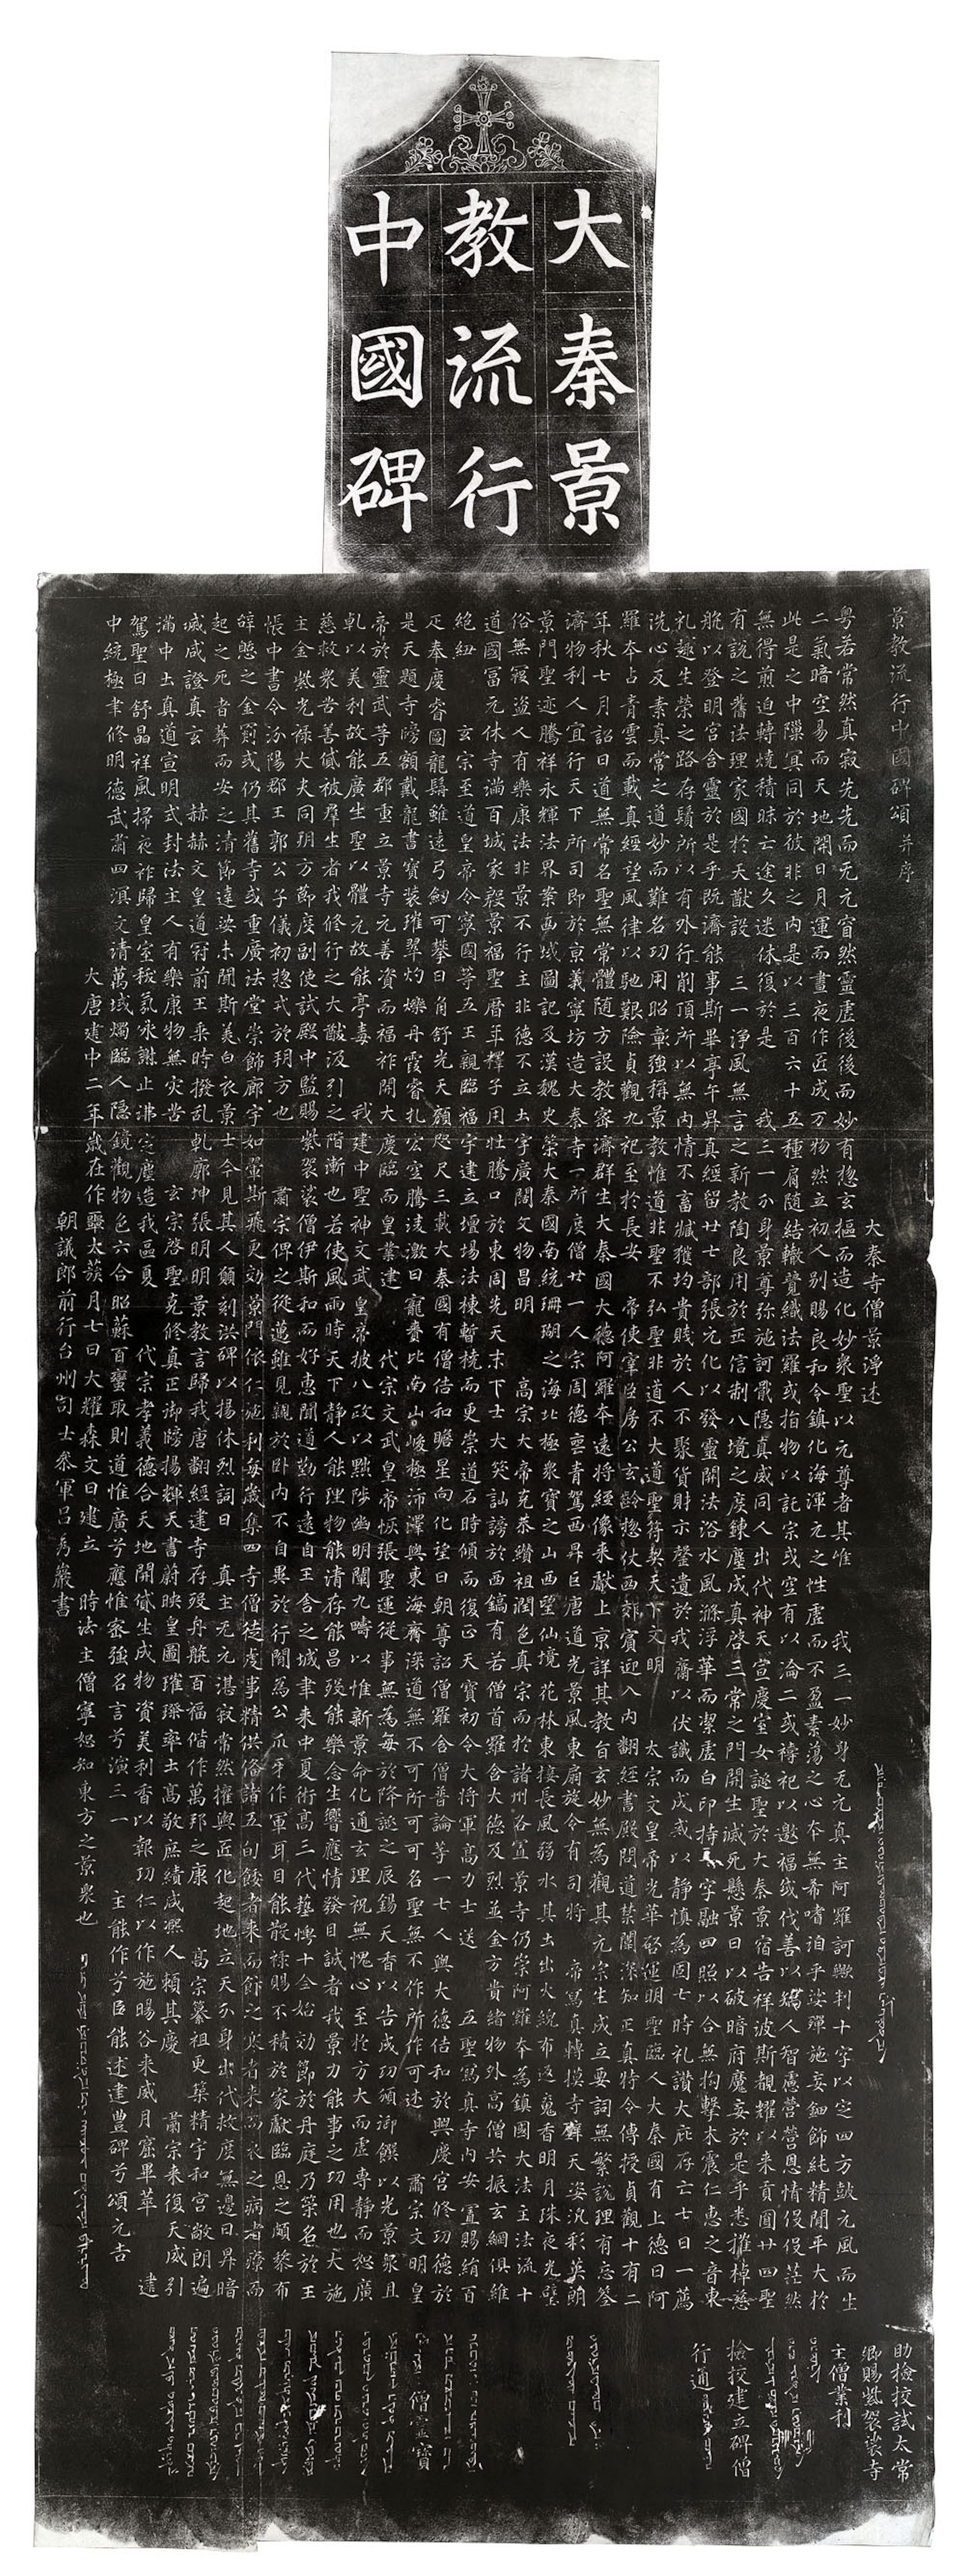 大秦景
教流行
中國碑
景教流行中國碑頌 并序
大秦寺僧景淨述
粵若常然真寂先先而无元窅然靈虛後後而妙有惣玄摳而造化妙衆聖以元尊者其唯 我三一妙身无元真主阿羅訶歟判十字以定四方鼓元風而生
二氣暗空易而天地開日月運而晝夜作匠成万物然立初人別賜良和令鎮化海渾元之性虛而不盈素蕩之心本無希嗜洎乎娑殫施妄鈿飾純精閒平大於
此是之中隟冥同於彼非之內是以三百六十五種肩随結轍競織法羅或指物以託宗或空有以淪二或禱祀以邀福或伐善以矯人智慮營營恩情役役茫然
無得煎迫轉燒積昧亡途久迷休復於是 我三一分身景尊弥施訶戢隱真威同人出代神天宣慶室女誕聖於大秦景宿告祥波斯覩耀以来貢圓廿四聖
有說之舊法理家國於大猷設 三一淨風無言之新教陶良用於正信制八境之度鍊塵成真啓三常之門開生滅死懸景日以破暗府魔妄於是乎悉摧棹慈
航以登明宮含靈於是乎既濟能事斯畢亭午昇真經留廿七部張元化以發靈關法浴水風滌浮華而潔虛白印持十字融四照以合無拘擊木震仁惠之音東
礼趣生榮之路存鬚所以有外行削頂所以無內情不畜臧獲均貴賤於人不聚貨財示罄遺於我齋以伏識而成戒以靜慎為固七時礼讚大庇存亡七日一薦
洗心反素真常之道妙而難名功用昭彰強稱景教惟道非聖不弘聖非道不大道聖符契天下文明 太宗文皇帝光華啓運明聖臨人大秦國有上德曰阿
羅本占青雲而載真經望風律以馳艱險貞觀九祀至於長安 帝使宰臣房公玄齡惣仗西郊賓迎入內翻經書殿問道禁闈深知正真特令傳授貞觀十有二
年秋七月詔曰道無常名聖無常體随方設教密濟群生大秦國大德阿羅本遠將經像来獻上京詳其教旨玄妙無為觀其元宗生成立要詞無繁說理有忘筌
濟物利人宜行天下所司即於京義寧坊造大秦寺一所度僧廿一人宗周德喪青駕西昇巨唐道光景風東扇旋令有司將 帝寫真轉摸寺壁天姿汎彩英朗
景門聖迹騰祥永輝法界案西域圖記及漢魏史策大秦國南統珊瑚之海北極衆寶之山西望仙境花林東接長風弱水其土出火綄布返魂香明月珠夜光璧
俗無寇盜人有樂康法非景不行主非德不立土宇廣闊文物昌明 高宗大帝克恭纘祖潤色真宗而於諸州各置景寺仍崇阿羅本為鎮國大法主法流十
道國富元休寺滿百城家殷景福聖曆年釋子用壯騰口於東周先天末下士大笑訕謗於西鎬有若僧首羅含大德及烈並金方貴緒物外高僧共振玄綱俱維
絕紐 玄宗至道皇帝令寧國等五王親臨福宇建立壇場法棟暫橈而更崇道石時傾而復正天寶初令大將軍高力士送 五聖寫真寺內安置賜絹百
疋奉慶睿圖龍髯雖遠弓劍可攀日角舒光天顏咫尺三載大秦國有僧佶和瞻星向化望日朝尊詔僧羅含僧普論等一七人與大德佶和於興慶宮修功德於
是天題寺牓額戴龍書寶裝璀翠灼爍丹霞睿扎宏空騰凌激日寵賚比南山峻極沛澤與東海齊深道無不可所可可名聖無不作所作可述 肅宗文明皇
帝於靈武等五郡重立景寺元善資而福祚開大慶臨而皇業建 代宗文武皇帝恢張聖運從事無為每於降誕之辰錫天香以告成功頒御饌以光景衆且
乹以美利故能廣生聖以體元故能亭毒 我建中聖神文武皇帝披八政以黜陟幽明闡九疇以惟新景命化通玄理祝無愧心至於方大而虛專靜而恕廣
慈救衆苦善貸被群生者我修行之大猷汲引之階漸也若使風雨時天下靜人能理物能清存能昌歿能樂念生響應情發目誠者我景力能事之功用也大施
主金紫光祿大夫同朔方節度副使試殿中監賜紫袈裟僧伊斯和而好惠聞道勤行遠自王舍之城聿来中夏術高三代藝博十全始効節於丹庭乃策名於王
帳中書令汾陽郡王郭公子儀初惣戎於朔方也 肅宗俾之從邁雖見親於卧內不自異於行間為公爪牙作軍耳目能散祿賜不積於家獻臨恩之頗黎布
辭憩之金罽或仍其舊寺或重廣法堂崇飾廊宇如翬斯飛更効景門依仁施利每歲集四寺僧徒虔事精供俻諸五旬餧者来而飰之寒者来而衣之病者療而
起之死者葬而安之清節達娑未聞斯美白衣景士今見其人願刻洪碑以揚休烈詞曰 真主无元湛寂常然權輿匠化起地立天分身出代救度無邊日昇暗
滅咸證真玄 赫赫文皇道冠前王乘時撥乱乹廓坤張明明景教言歸我唐翻經建寺存歿舟航百福偕作萬邦之康 高宗纂祖更築精宇和宮敞朗遍
滿中土真道宣明式封法主人有樂康物無灾苦 玄宗啓聖克修真正御牓揚輝天書蔚映皇圖璀璨率土高敬庶績咸熙人賴其慶 肅宗来復天威引
駕聖日舒晶祥風掃夜祚歸皇室祅氛永謝止沸定塵造我區夏 代宗孝義德合天地開貸生成物資美利香以報功仁以作施暘谷来威月窟畢萃 建
中統極聿修明德武肅四溟文清萬域燭臨人隱鏡觀物色六合昭蘇百蠻取則道惟廣兮應惟密強名言兮演三一 主能作兮臣能述建豐碑兮頌元吉
大唐建中二年歲在作噩太蔟月七日大耀森文日建立 時法主僧寧恕知東方之景衆也
朝議郎前行台州司士參軍呂秀巖書
助檢挍試太常
卿賜紫袈裟寺
主僧業利
檢挍建立碑僧
行通
僧靈寶